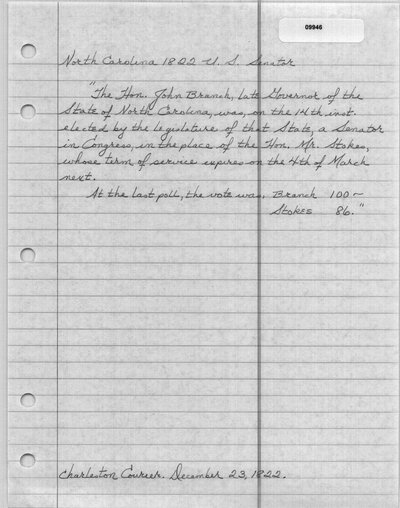 09946
North Carolina 1822 U. S. Senator
"The Hon. John Branch, late Governor of the
State of North Carolina, was, on the 14th inst.
elected by the legislature of that State, a Senator
in Congress, in the place of the Hon. Mr. Stokes,
whose term of service expires on the 4th of March
next.
At the last poll, the vote was, Branch 100~
Stokes 86."
Charleston Courier. December 23, 1822.